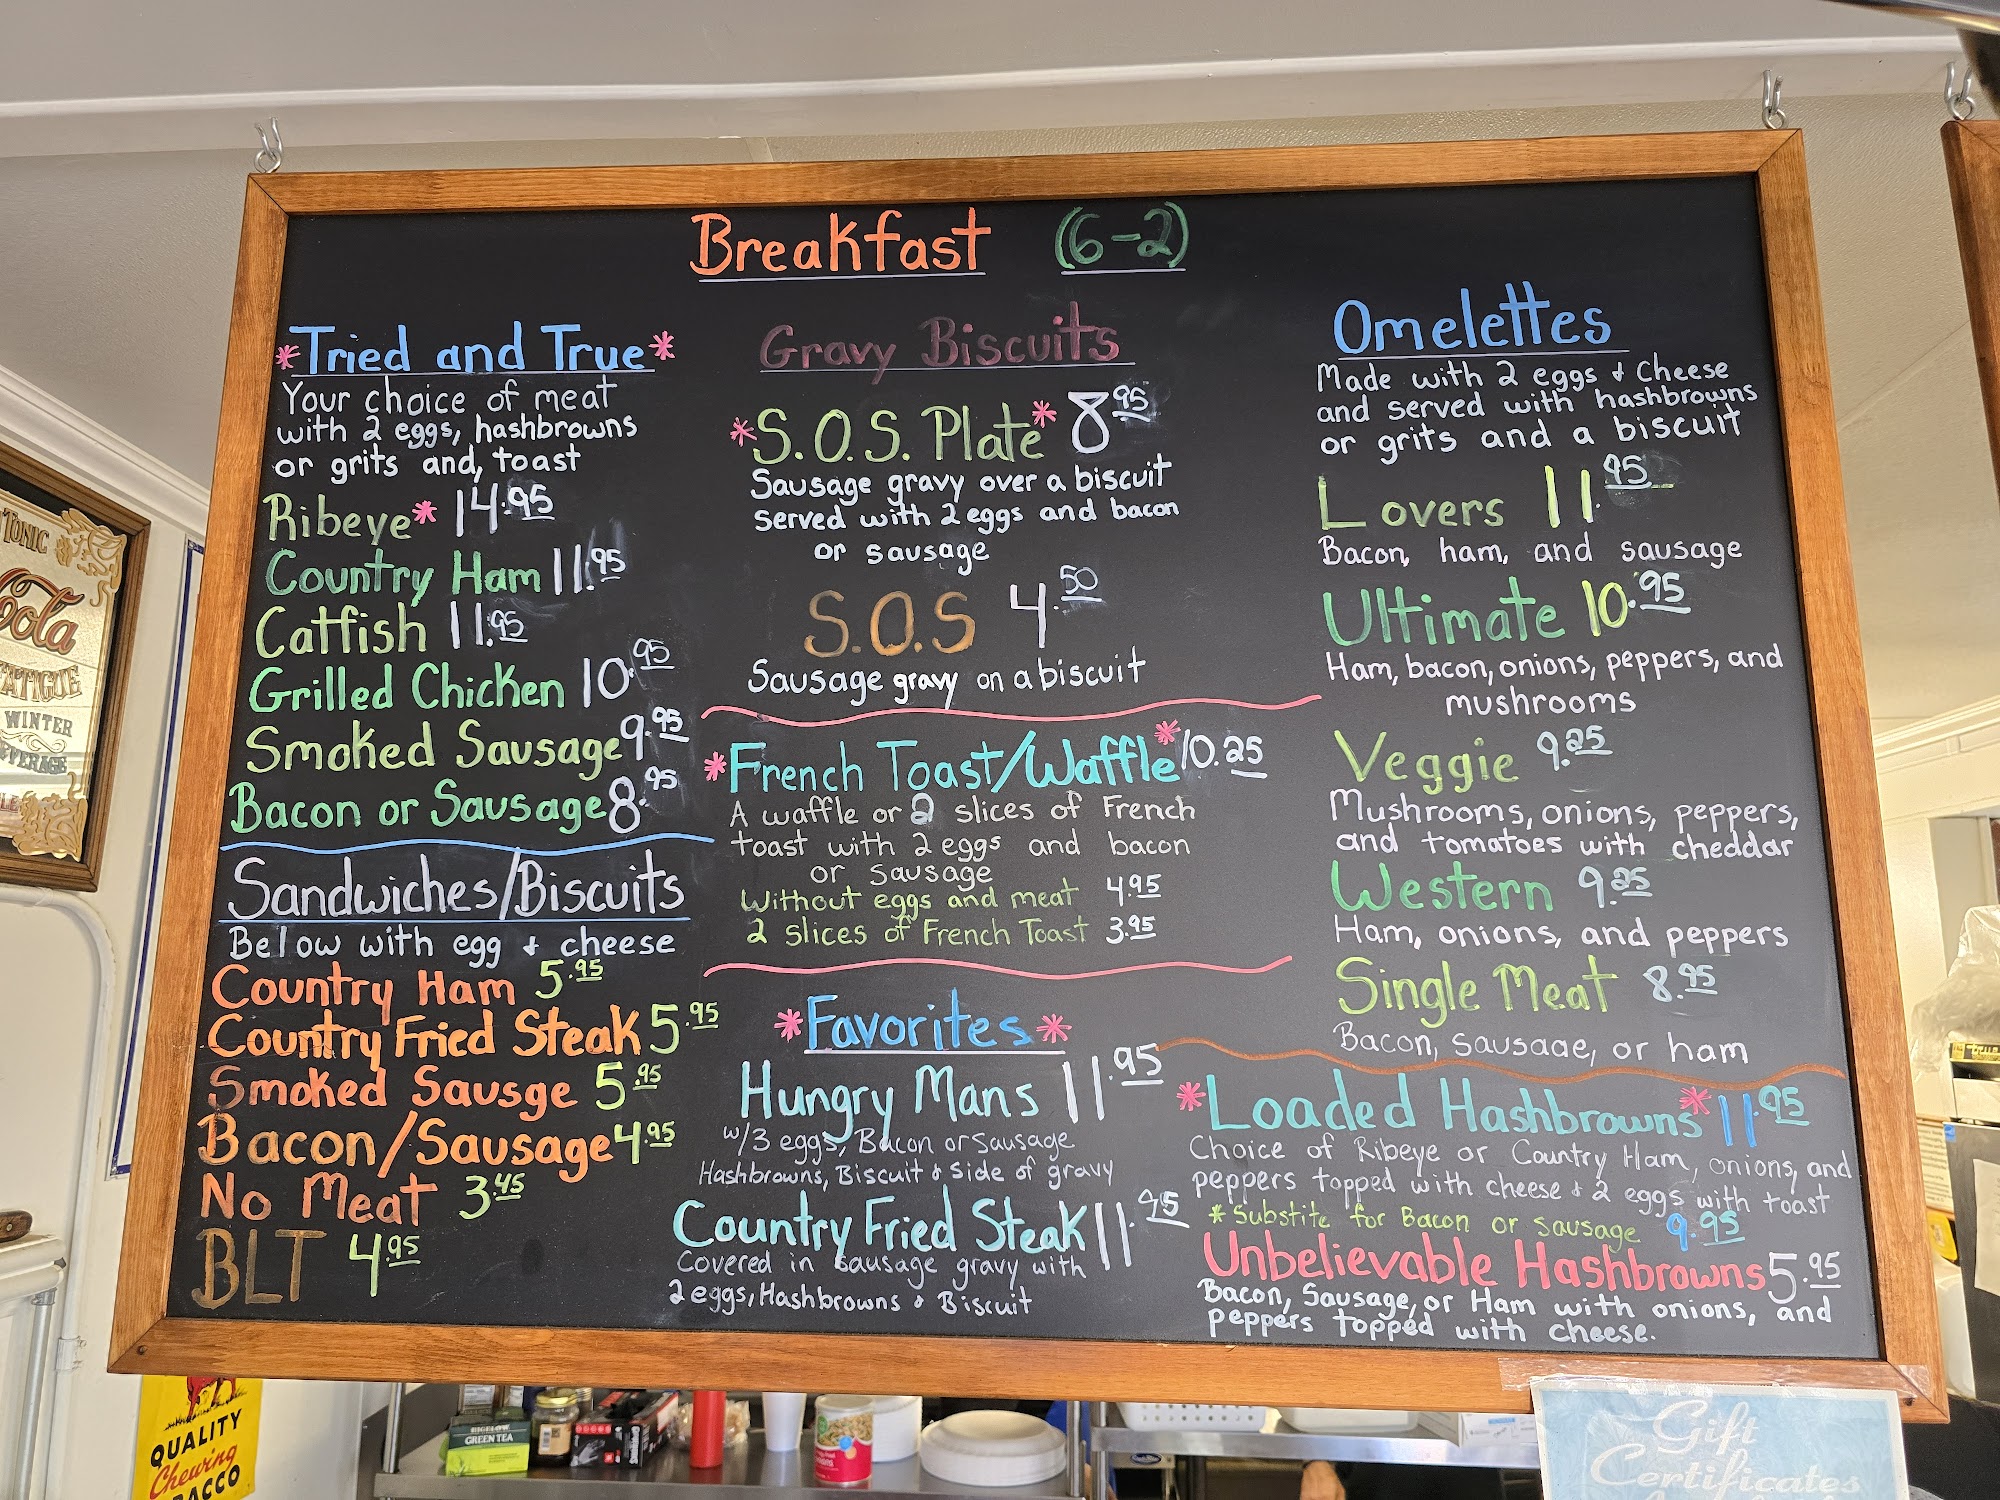 Breakfast (6-2)
*Tried and True*
Your choice of meat
with 2 eggs, hashbrowns
or grits and, toast
Ribeye* 14.95
Country Ham 11.95
Catfish 11.95
Grilled Chicken 10.95
Smoked Sausage 9.95
Bacon or Sausage 8.95
Sandwiches/Biscuits
Below with egg & cheese
Country Ham 5.95
Country Fried Steak 5.95
Smoked Sausge 5.95
Bacon/Sausage 4.95
No Meat 3.45
BLT 4.95
Gravy Biscuits
*S.O.S. Plate* 8.95
Sausage gravy over a biscuit
served with 2 eggs and bacon
or sausage
S.O.S 4.50
Sausage gravy on a biscuit
*French Toast/Waffle* 10.25
A waffle or 2 slices of French
toast with 2 eggs and bacon
or sausage
Without eggs and meat 4.95
2 slices of French Toast 3.95
*Favorites*
Hungry Mans 11.95
w/3 eggs, Bacon or Sausage
Hashbrowns, Biscuit & side of gravy
Country Fried Steak 11.95
Covered in sausage gravy with
2 eggs, Hashbrowns & Biscuit
Omelettes
Made with 2 eggs & cheese
and served with hashbrowns
or grits and a biscuit
Lovers 11.95
Bacon, ham, and sausage
Ultimate 10.95
Ham, bacon, onions, peppers, and
mushrooms
Veggie 9.25
Mushrooms, onions, peppers,
and tomatoes with cheddar
Western 9.25
Ham, onions, and peppers
Single Meat 8.95
Bacon, sausage, or ham
*Loaded Hashbrowns* 11.95
Choice of Ribeye or Country Ham, onions, and
peppers topped with cheese & 2 eggs with toast
*Substite for Bacon or sausage 9.95
Unbelievable Hashbrowns 5.95
Bacon, Sausage, or Ham with onions, and
peppers topped with cheese.
TONIC
Cola
FATIGUE
WINTER
BEVERAGE
QUALITY
Chewing
TOBACCO
BIGELOW
GREEN TEA
Gift
Certificates